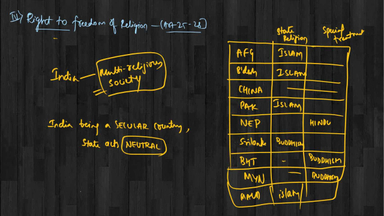 IV) Right to freedom of Religion — (Art-25-28)
India — Multi-religious
society
India being a SECULAR Country,
State acts NEUTRAL
State Religion
Special treatment
AFG ISLAM
B'desh ISLAM
CHINA —
PAK ISLAM
NEP HINDU
Srilank BUDDHISM
BHT - BUDDHISM
MYN BUDDHISM
islam